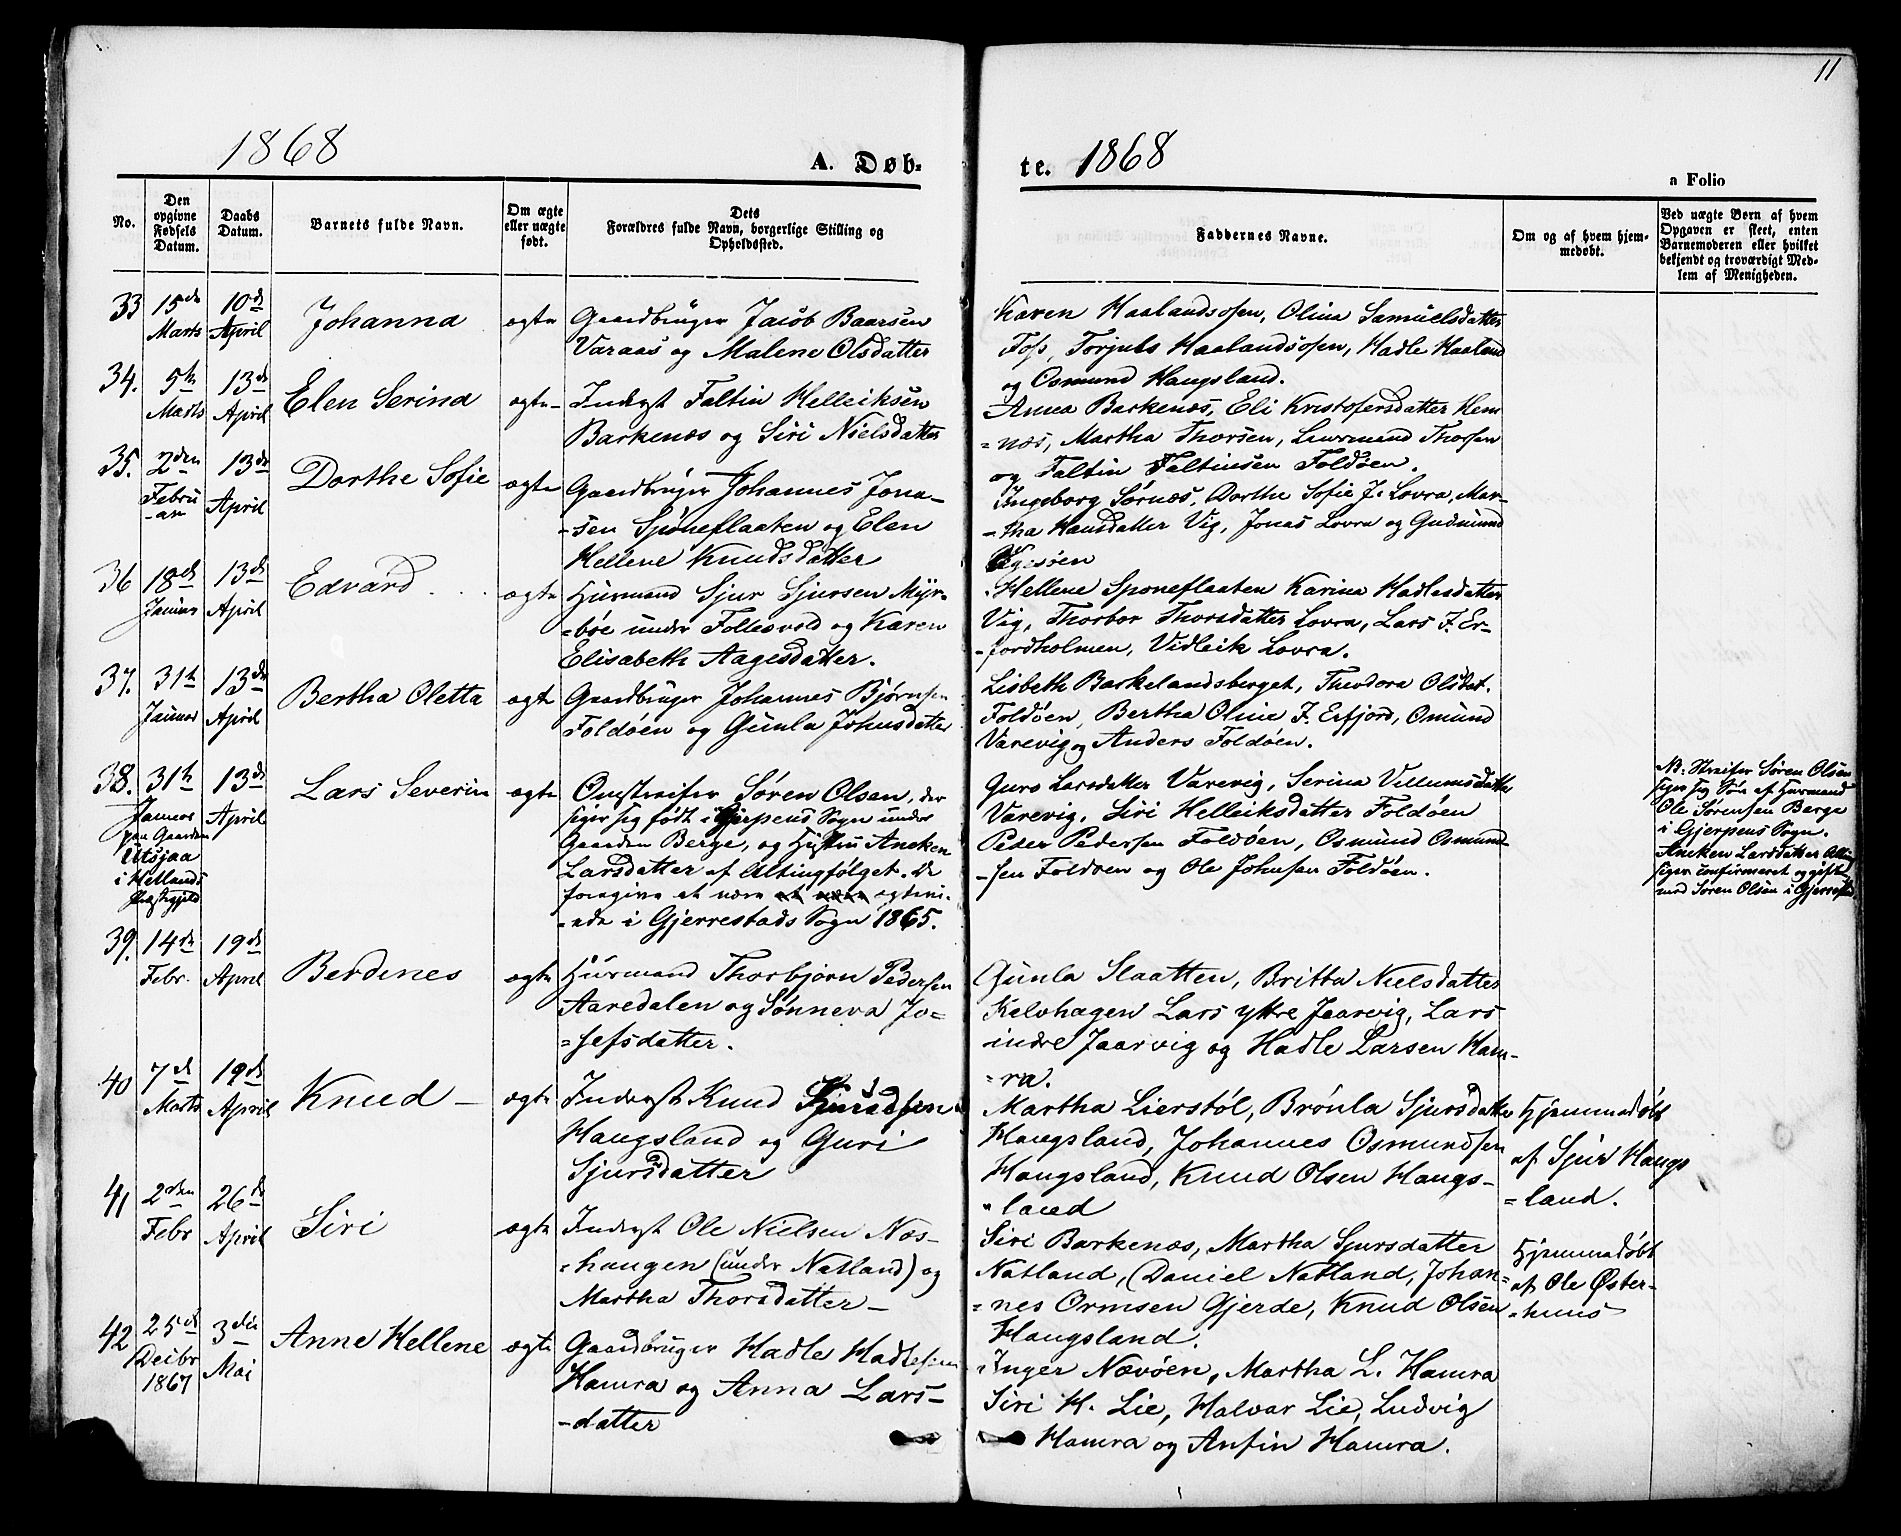 11
1868
A. Døb-
te. 1868
a Folio
No.
Den opgivne Fødsels Datum.
Daabs Datum.
Barnets fulde Navn.
Om ægte eller uægte født.
Dets Forældres fulde Navn, borgerlige Stilling og Opholdssted.
Faddernes Navne.
Om og af hvem hjemmedøbt.
Ved uægte Børn af hvem Opgaven er skeet, enten Barnemoderen eller hvilket bekjendt og troværdigt Medlem af Menigheden.
33 15de Marts 10de April Johanna ægte
Gaardbruger Jacob Baarsen
Varaas og Malene Olsdatter
Karen Haalandsosen, Olina Samuelsdatter
Foss, Torjuls Haalandsosen, Hadle Haaland
og Osmund Haugsland.
34. 5te Marts 13de April Elen Serina ægte
Inderst Faltin Helleiksen
Barkenæs og Siri Nielsdatter
Anna Barkenæs, Eli Kristofersdatter Hem
=næs, Martha Thorsen, Laurmand Thorsen
og Faltin Faltinsen Foldøen.
35. 2den Februar 13de April Dorthe Sofie ægte
Gaardbruger Johannes Jona-
-sen Spøneflaaten og Elen
Hellene Knudsdatter
Ingeborg Sørnæs, Dorthe Sofie J. Lovra, Mar-
-tha Hansdatter Vig, Jonas Lovra og Gudmund
36 18de Januar 13de April Edvard ægte
Huusmand Sjur Sjursen Myr-
=bøe under Follesvold og Karen
Elisabeth Aagesdatter.
Hellene Sponeflaaten Karina Hadlesdatter
Vig, Thorbor Thorsdatter Lovra, Lars J. Er-
-fordholmen, Vidleik Lovra.
37. 31te Januar 13de April Bertha Oletta ægte
Gaardbruger Johannes Bjørnsen
Foldøen og Gunla Johnsdatter
Lisbeth Barkelandsberget, Theodora Olsdat.
Foldøen, Bertha Oline J. Erfjord, Osmund
Varevig og Anders Foldøen.
38. 31te Januar paa Gaarden Utsjaa i Hetlands Præstegjeld 13de April Lars Severin ægte
Omstreifer Søren Olsen, der
siger sig født i Gjerpens Sogn under
Gaarden Berge, og Hustru Aneken
Larsdatter af Altingfølget. De
foregive at være ægtevi-
-ede i Gjerrestads Sogn 1865.
Guro Larsdatter Varevig, Serina Villumsdatter
Varevig, Siri Helleiksdatter Foldøen
Peder Pedersen Foldøen, Osmund Osmund-
-sen Foldøen og Ole Johnsen Foldøen.
NB. Streifer Søren Olsen
siger sig Søn af Huusmand
Ole Sørensen Berge
i Gjerpens Sogn.
Aneken Larsdatter
siger confirmeret og gift
med Søren Olsen i Gjerrestad
39. 14de Febr. 19de April Berdines ægte
Huusmand Thorbjørn Pedersen
Aaredalen og Sønneva Jo=
=sefsdatter.
Gunla Slaatten, Britta Nielsdatter
Kelvhagen Lars yttre Jaarvig, Lars
indre Jaarvig og Hadle Larsen Ham-
=ra.
40 7de Marts 19de April Knud ægte
Inderst Knud
Haugsland og Guri
Sjursdatter
Martha Lierstøl, Brønla Sjursdatter
Haugsland, Johannes Osmundsen
Haugsland, Knud Olsen Haugs-
=land
Hjemmedøbt
af Sjur Haugs
=land.
41 2den Febr 26de April Siri ægte
Inderst Ole Nielsen Næs-
-haugen (under Natland) og
Martha Thorsdatter
Siri Barkenæs, Martha Sjursdatter
Natland, Daniel Natland, Johan=
=nes Ormsen Gjerde, Knud Olsen
Haugsland.
Hjemmedøbt
af Ole Øster-
-huus
42 25de Decbr 1867 3die Mai Anne Hellene ægte
Gaardbruger Hadle Hadlesen
Hamra og Anna Lars-
-datter
Inger Nævøen, Martha L. Hamra
Siri H. Lie, Halvar Lie, Ludvig
Hamra og Anfin Hamra.